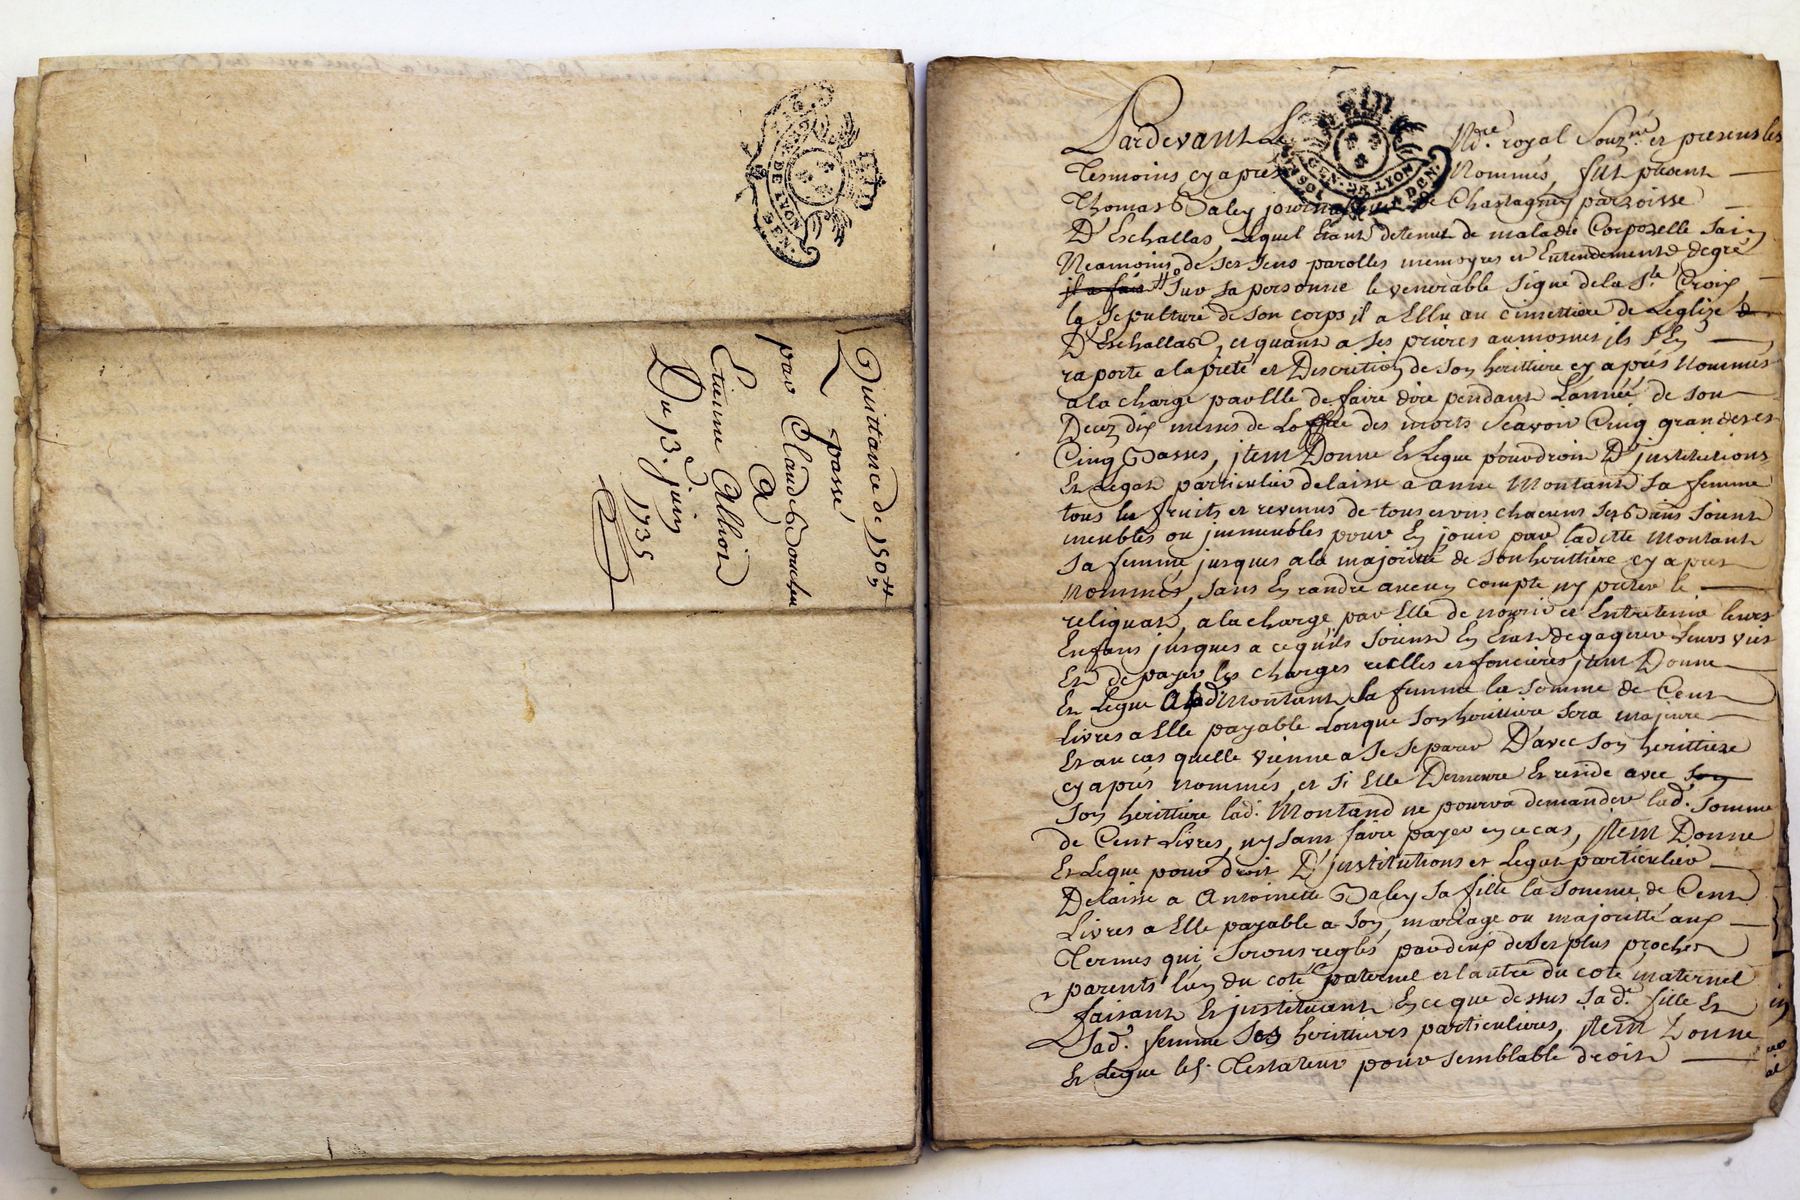 Quittance de 150 ₶
passé
par Claude
A
Etienne
Du 13. juin
1735
GEN. DE LYON
DEN.
Pardevant Le Nore. royal Souzne. et presens les
Tesmoins cy apres Nommés, fut present
Thomas Baley journallier de Chastagney parroisse
D'Eschallas, Lequel Etant detenut de maladie Corporelle sain
Neamoins de ses sens parolles memoyres et Entendements de gré
il a fait sur sa personne le venerable signe de la Ste Croix
la sepulture de son corps il a Ellu au cimettiere de Leglize de
D'Eschallas, et quant a ses prieres aumosnes il s'En
raporte a la pieté et Discretion de son herittiere cy aprés Nommés
a la charge par Elle de faire dire pendant L'année de son
Decez dix messes de Loffice des morts Scavoir Cinq grandes et
Cinq Basses, jtem Donne Et Legue pour droit D'institutions
Et Legat particulier delaisse a anne Montant Sa femme
tous les fruits et revenus de tous et uns chacuns ses Biens soient
meubles ou jmmeubles pour En jouir par ladite Montant
Sa femme jusques a la majoritté de son herittiere cy apres
Nommés, sans En randre aucun compte ny preter le
reliquat, a la charge par Elle de nourir et Entretenir leurs
Enfans jusques a ce quils soient En Etat de gagner leurs vies
Et de payer les charges reelles et foncieres jtem Donne
Et Legue A lad. Montant sa femme la somme de Cent
Livres a Elle payable Lorsque son herittiere sera majeure
Et au cas quelle vienne a se separer D'avec son herittiere
cy aprés nommés, et si Elle Demeure Et reside avec son
son herittiere lad. Montand ne pourra demander lad. somme
de Cent Livres, ny sans faire payer en ce cas, jtem Donne
Et Legue pour droit D'institutions et Legat particulier
Delaisse a Antoinette Baley sa fille la somme de Cent
Livres a Elle payable a son mariage ou majoritté aux
Termes qui seront reglés par deux de ses plus proches
parents l'un du coté paternel et l'autre du coté maternel
faisant Et jnstituant En ce que dessus sad. fille Et
sad. femme ses herittieres particulieres, jtem Donne
Et Legue led. Testateur pour semblable droit